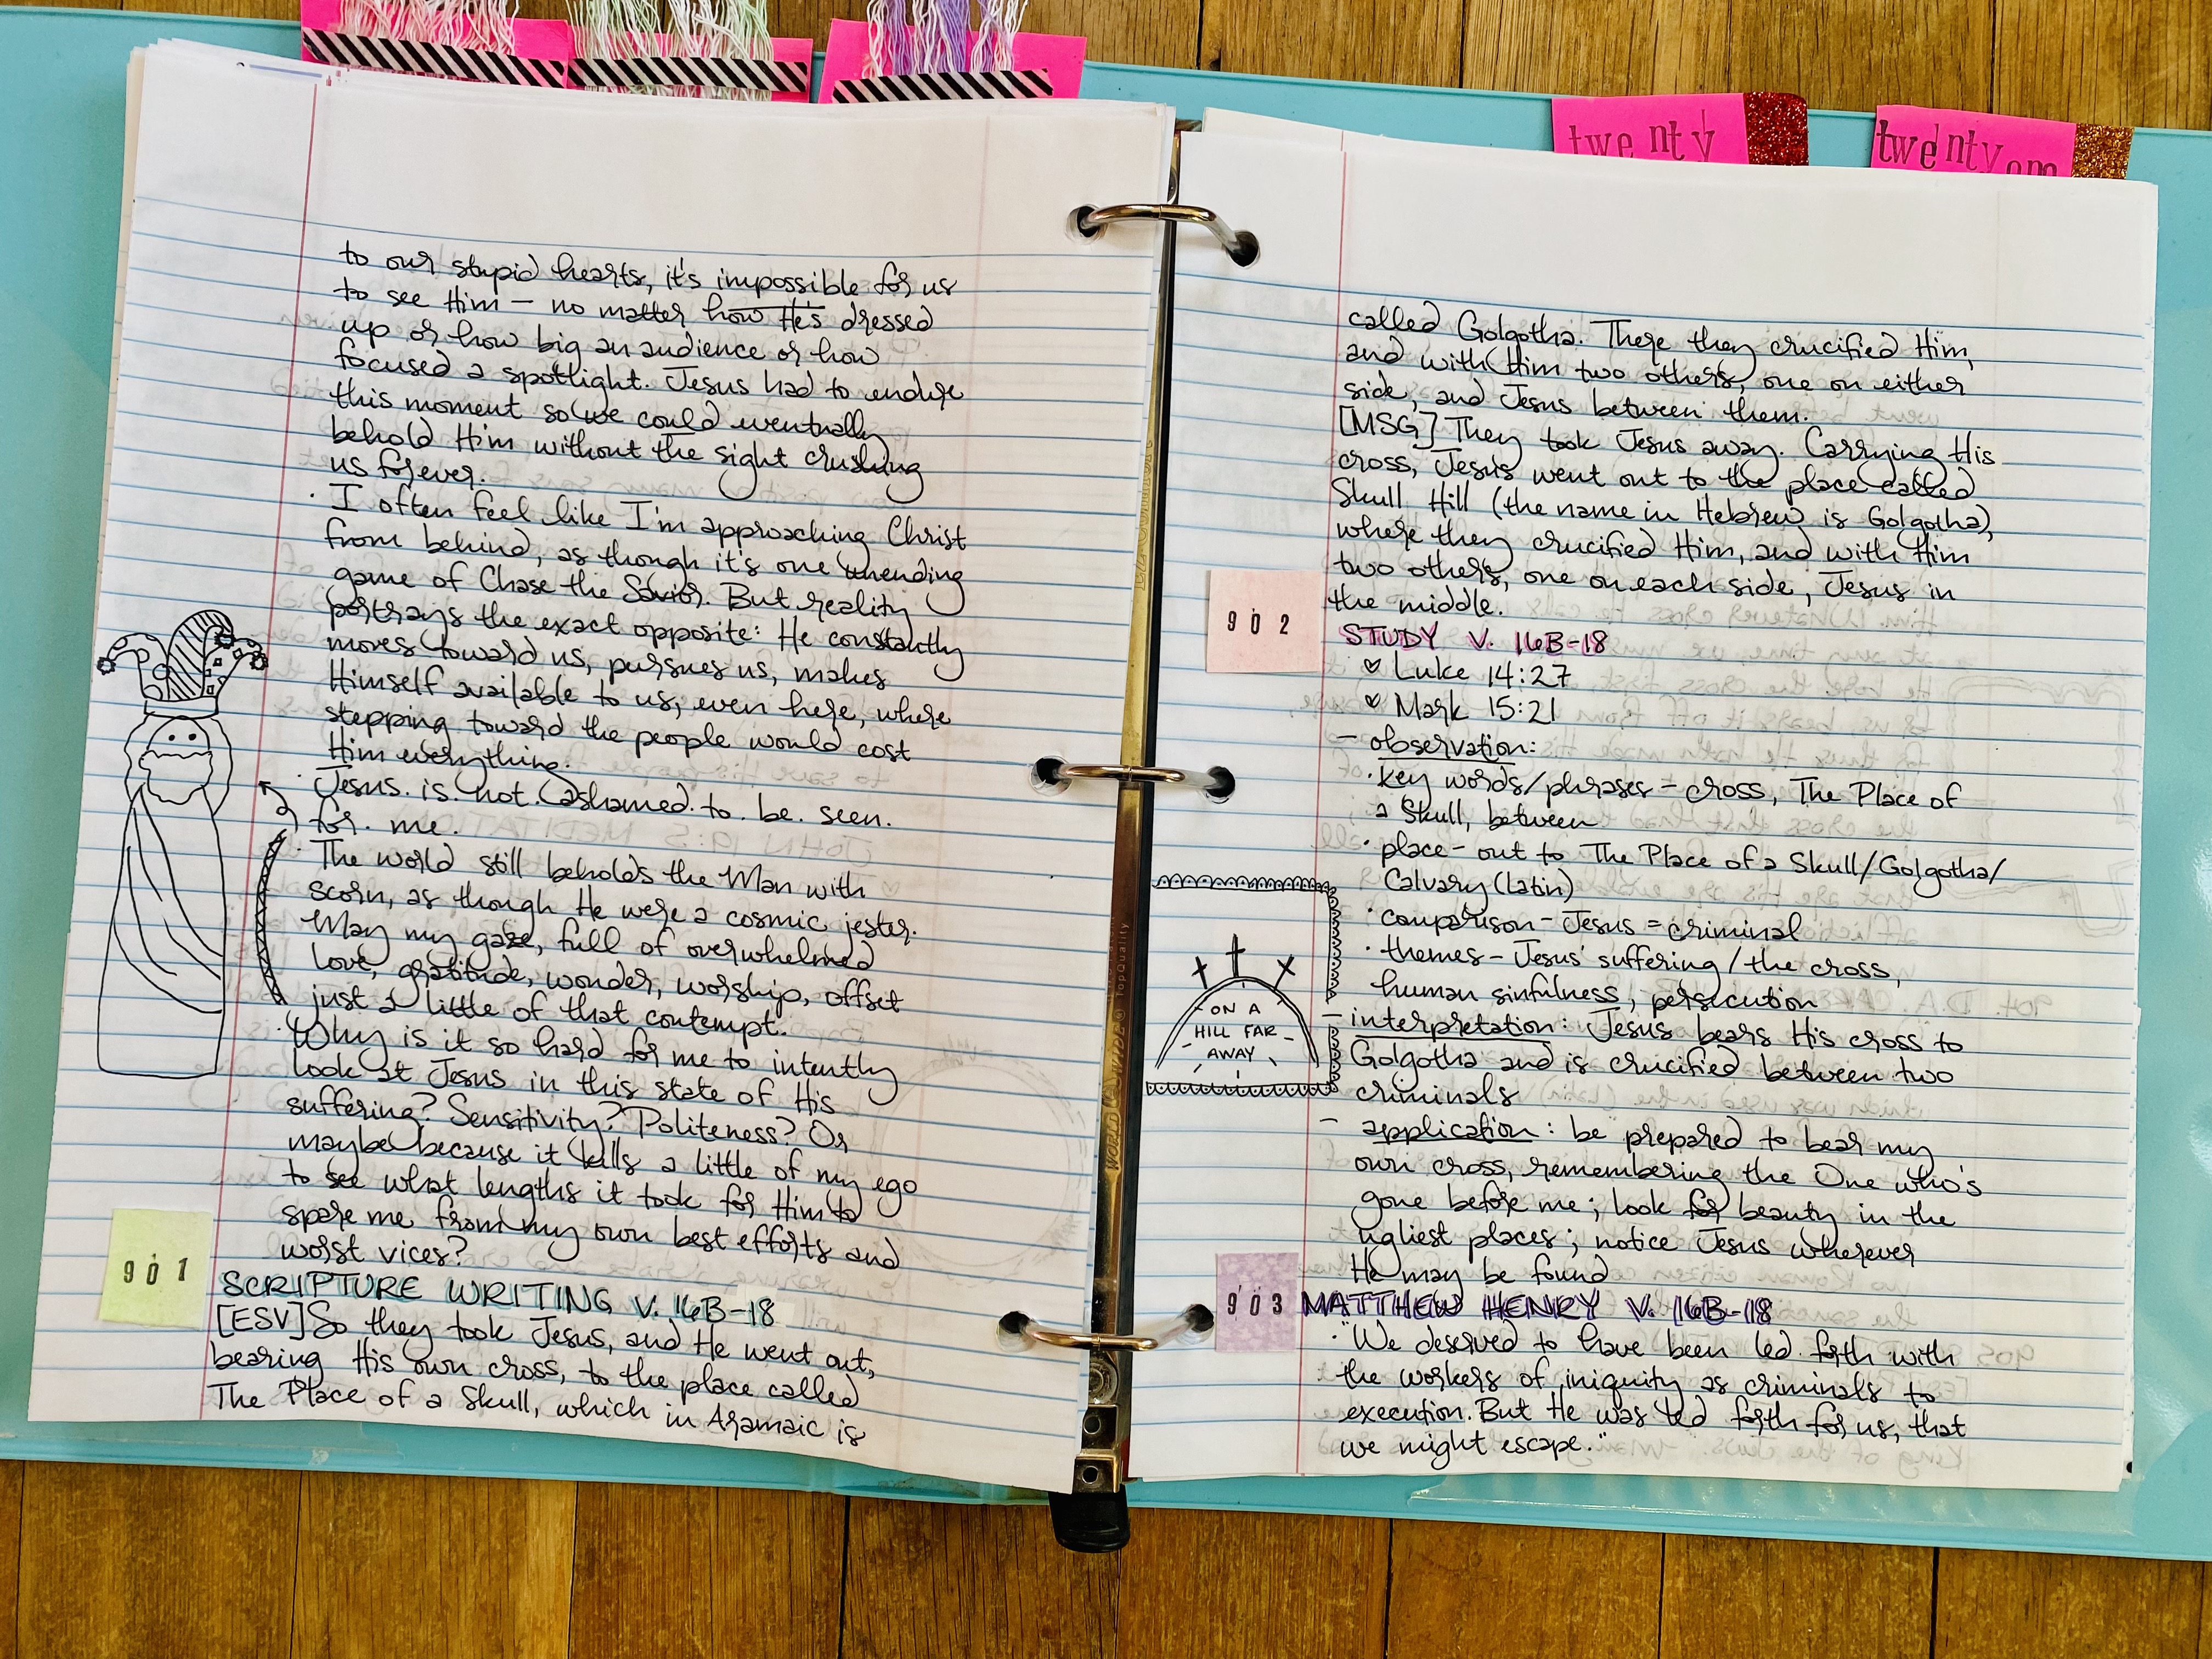 twenty
twenty one
to our stupid hearts, it's impossible for us
to see Him — no matter how He's dressed
up or how big an audience or how
focused a spotlight. Jesus had to endure
this moment so we could eventually
behold Him without the sight crushing
us forever.
· I often feel like I'm approaching Christ
from behind, as though it's one unending
game of Chase the Savior. But reality
portrays the exact opposite: He constantly
moves toward us, pursues us, makes
Himself available to us, even here, where
stepping toward the people would cost
Him everything.
· Jesus. is. not. ashamed. to. be. seen.
for. me.
· The world still beholds the Man with
scorn, as though He were a cosmic jester.
May my gaze, full of overwhelmed
love, gratitude, wonder, worship, offset
just a little of that contempt.
· Why is it so hard for me to intently
look at Jesus in this state of His
suffering? Sensitivity? Politeness? Or
maybe because it kills a little of my ego
to see what lengths it took for Him to
spare me from my own best efforts and
worst vices?
901
SCRIPTURE WRITING V. 16B-18
[ESV] So they took Jesus, and He went out,
bearing His own cross, to the place called
The Place of a Skull, which in Aramaic is
called Golgotha. There they crucified Him,
and with Him two others, one on either
side, and Jesus between them.
[MSG] They took Jesus away. Carrying His
cross, Jesus went out to the place called
Skull Hill (the name in Hebrew is Golgotha),
where they crucified Him, and with Him
two others, one on each side, Jesus in
the middle.
902
STUDY V. 16B-18
♡ Luke 14:27
♡ Mark 15:21
- observation:
· key words/phrases = cross, The Place of
a Skull, between
· place - out to The Place of a Skull/Golgotha/
Calvary (Latin)
· comparison - Jesus = criminal
· themes - Jesus' suffering/the cross,
human sinfulness, persecution
- interpretation: Jesus bears His cross to
Golgotha and is crucified between two
criminals
- application: be prepared to bear my
own cross, remembering the One who's
gone before me; look for beauty in the
ugliest places; notice Jesus wherever
He may be found
ON A
HILL FAR
AWAY
903
MATTHEW HENRY V. 16B-18
· "We deserved to have been led forth with
the workers of iniquity as criminals to
execution. But He was led forth for us, that
we might escape."